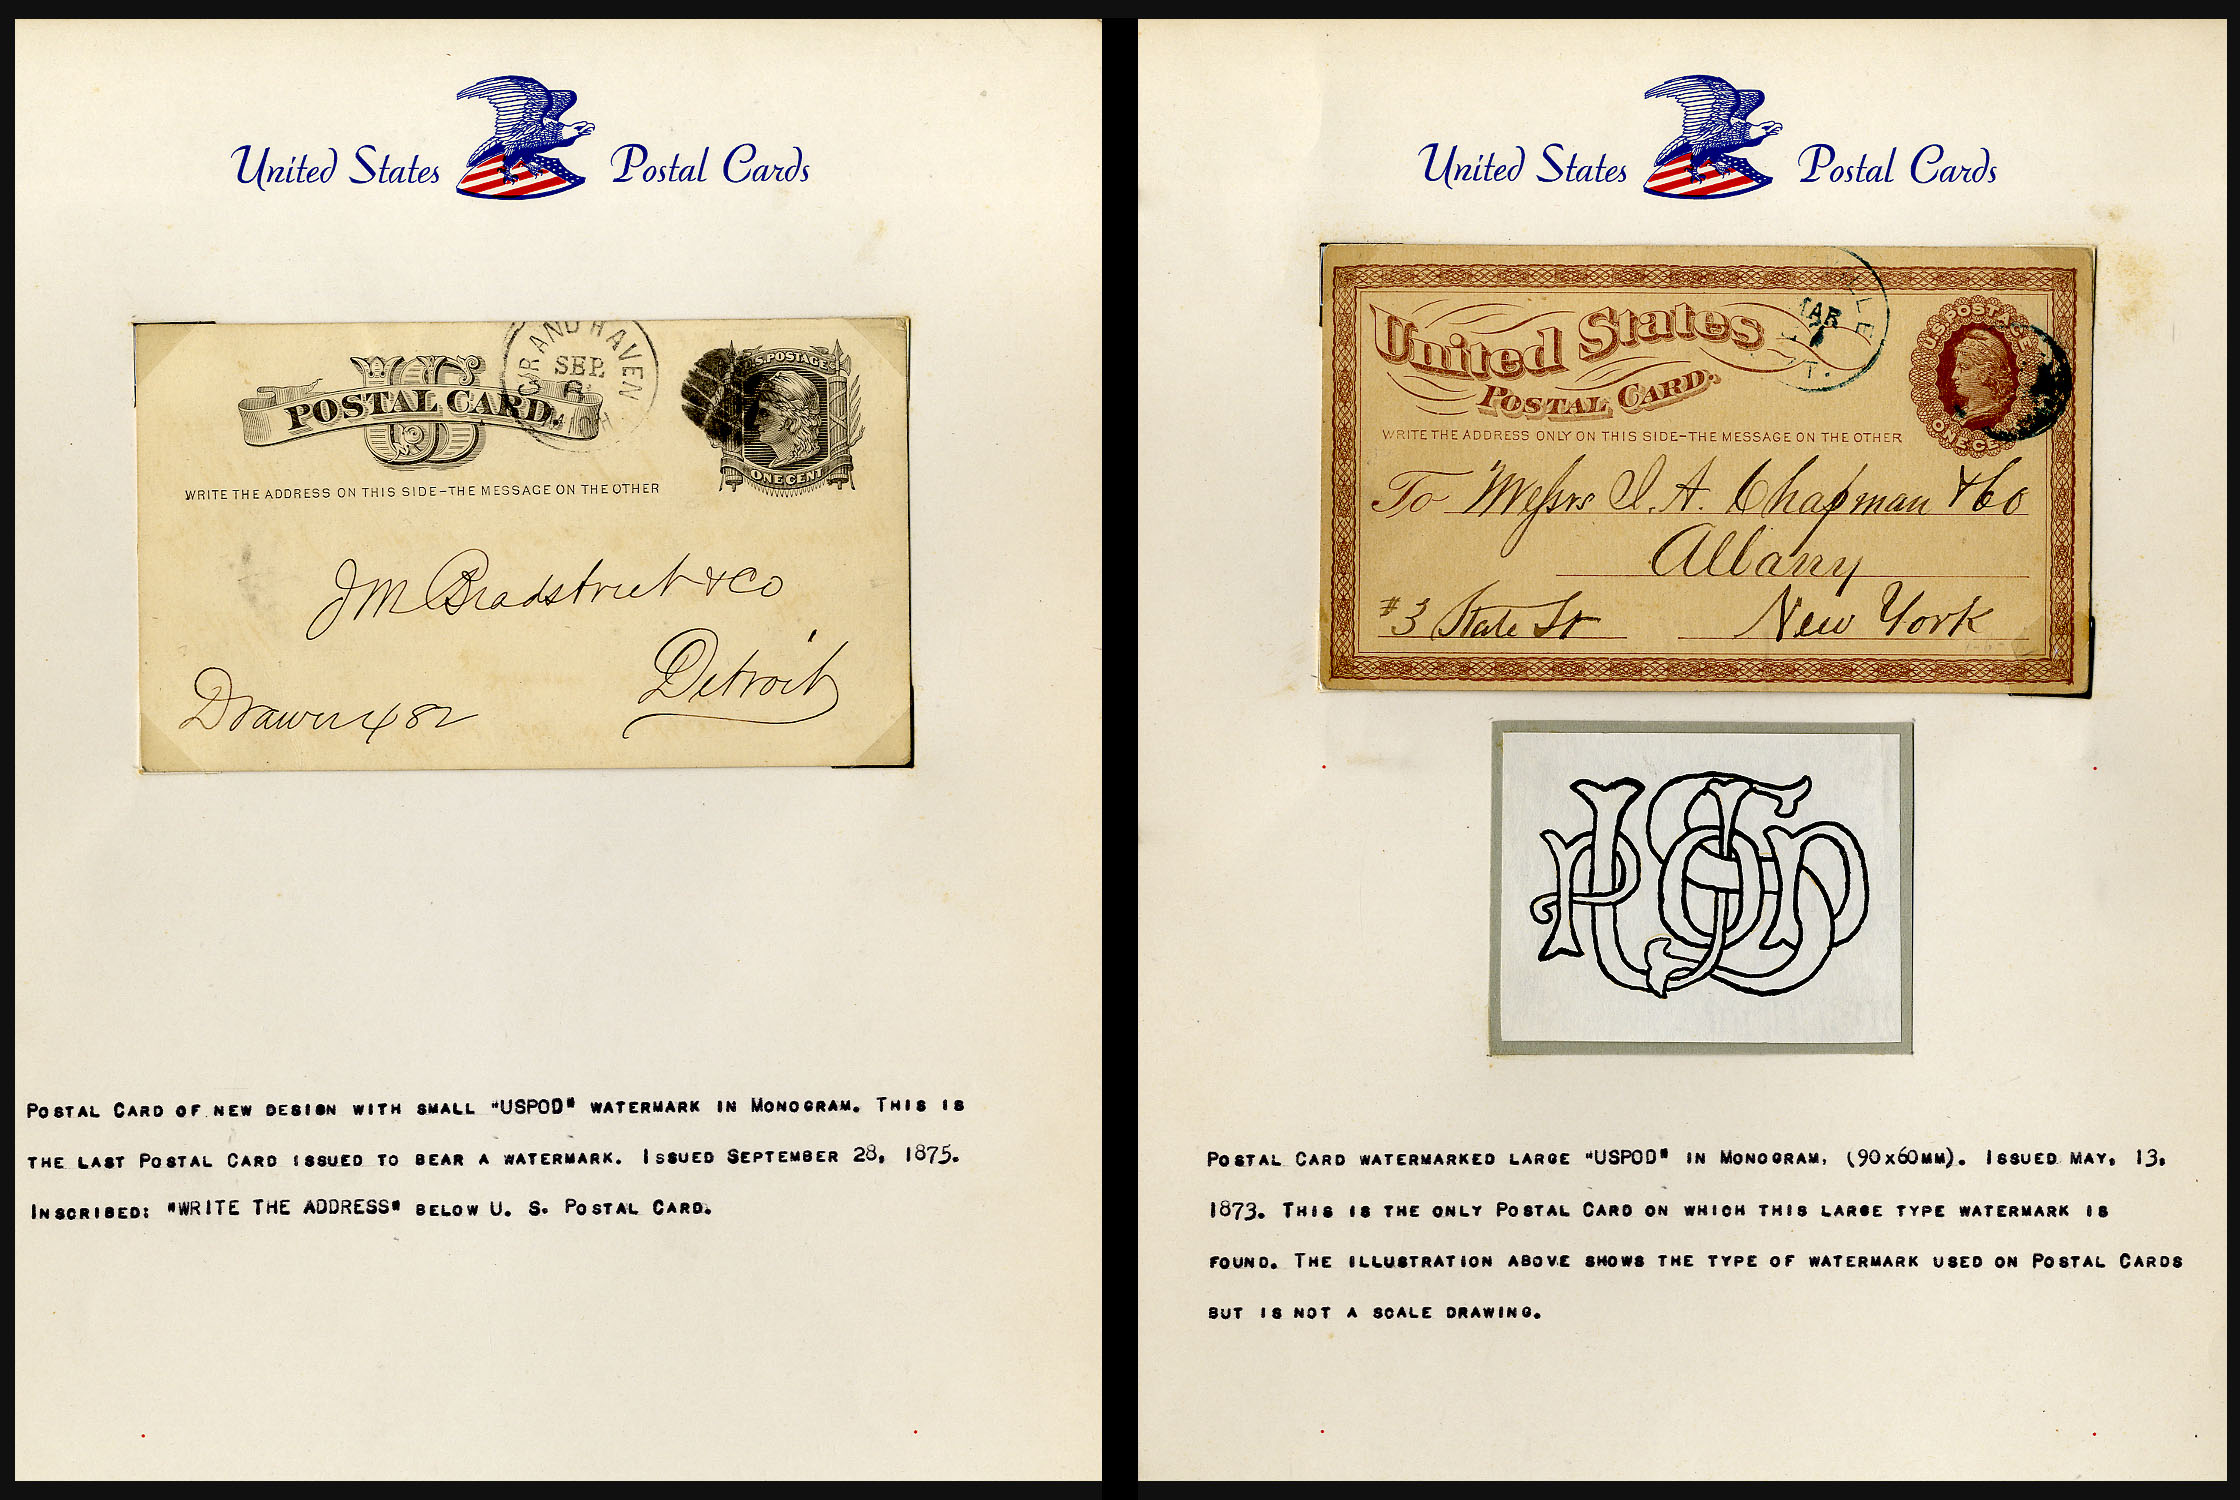 United States Postal Cards
GRAND HAVEN
SEP
6
MICH
U.S. POSTAGE
US
POSTAL CARD.
ONE CENT
WRITE THE ADDRESS ON THIS SIDE-THE MESSAGE ON THE OTHER
J M Bradstreet & Co
Detroit
Drawer 482
POSTAL CARD OF NEW DESIGN WITH SMALL "USPOD" WATERMARK IN MONOGRAM. THIS IS
THE LAST POSTAL CARD ISSUED TO BEAR A WATERMARK. ISSUED SEPTEMBER 28, 1875.
INSCRIBED: "WRITE THE ADDRESS" BELOW U. S. POSTAL CARD.
United States Postal Cards
United States
POSTAL CARD.
MAR
7
U.S. POSTAGE
ONE CENT
WRITE THE ADDRESS ONLY ON THIS SIDE-THE MESSAGE ON THE OTHER
To Messrs I. A. Chapman & Co
Albany
#3 State St New York
USPOD
POSTAL CARD WATERMARKED LARGE "USPOD" IN MONOGRAM, (90x60MM). ISSUED MAY, 13,
1873. THIS IS THE ONLY POSTAL CARD ON WHICH THIS LARGE TYPE WATERMARK IS
FOUND. THE ILLUSTRATION ABOVE SHOWS THE TYPE OF WATERMARK USED ON POSTAL CARDS
BUT IS NOT A SCALE DRAWING.